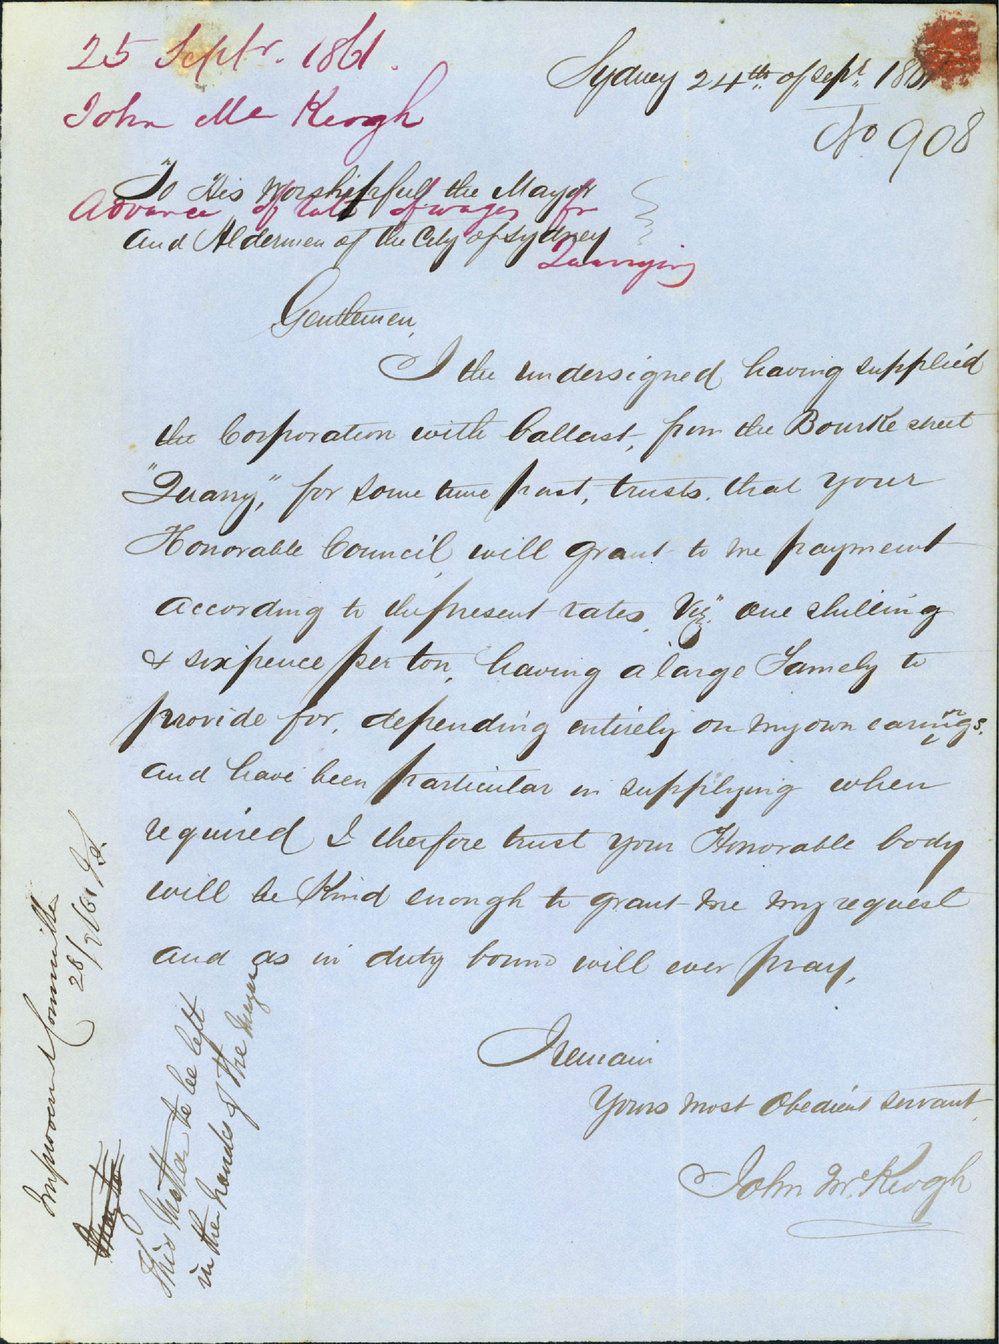 25 Septr. 1861.
John Mc Keogh
Advance of rate of wages for
Quarrying
Sydney 24th of Sept 1861
No 908
To His Worshipfull the Mayor
and Aldermen of the City of Sydney
Gentlemen,
I the undersigned having supplied
the Corporation with ballast, from the Bourke street
"Quarry," for some time past, trusts, that your
Honorable Council will grant to me payment
according to the present rates, Viz" one shilling
& sixpence per ton, having a large Famely to
provide for, depending entirely on my own earnings,
and have been particular in supplying when
required I therfore trust your Honorable body
will be Kind enough to grant me my request
and as in duty bound will ever pray,
I remain
Yours most Obedient servant,
John McKeogh
Improvement Committee
28/9/61
This Matter to be left
in the hands of the Mayor